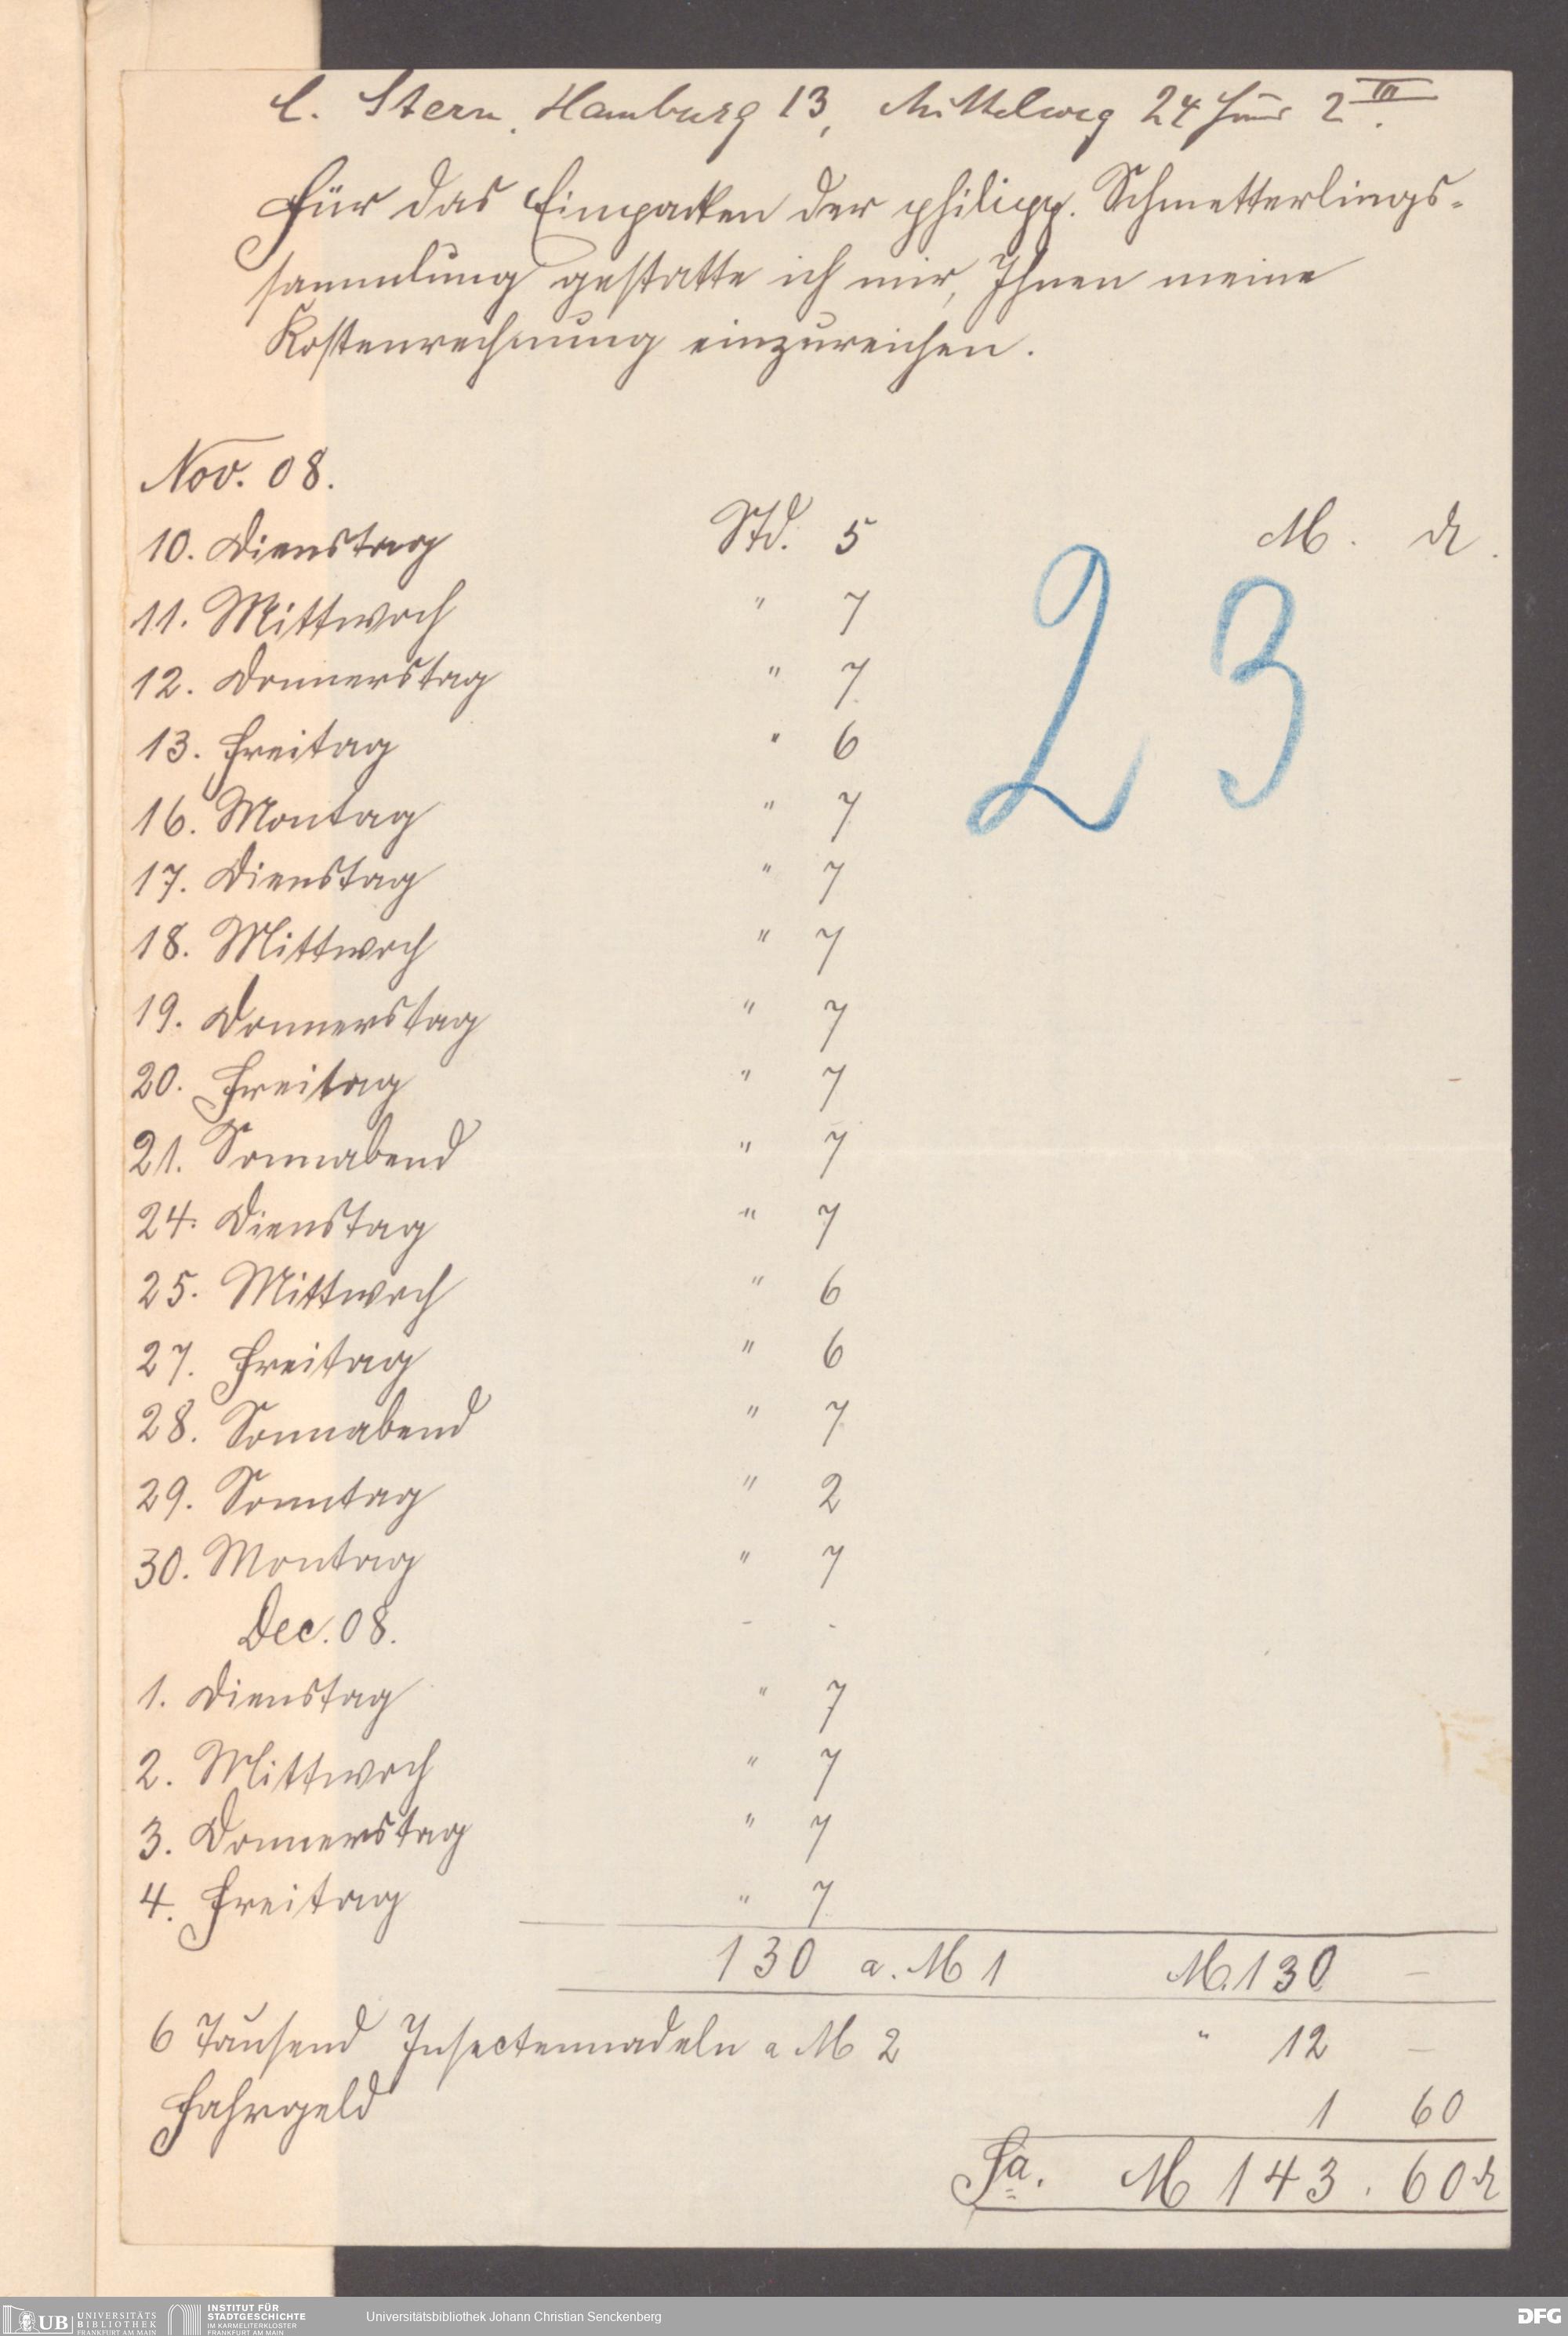 C. Stern, Hamburg 13, Mittelweg 24 Haus 2 III.
Für das Einpacken der philipp. Schmetterlings-
sammlung gestatte ich mir, Ihnen meine
Kostenrechnung einzureichen.
Nov. 08.
10. Dienstag Std. 5 M. ₰.
23
11. Mittwoch " 7
12. Donnerstag " 7
13. Freitag " 6
16. Montag " 7
17. Dienstag " 7
18. Mittwoch " 7
19. Donnerstag " 7
20. Freitag " 7
21. Sonnabend " 7
24. Dienstag " 7
25. Mittwoch " 6
27. Freitag " 6
28. Sonnabend " 7
29. Sonntag " 2
30. Montag " 7
Dec. 08. - -
1. Dienstag " 7
2. Mittwoch " 7
3. Donnerstag " 7
4. Freitag " 7
130 a. M 1 M. 130 –
6 Tausend Insectennadeln a M 2 " 12 –
Fahrgeld 1 60
Sa. M 143.60 ₰
UB UNIVERSITÄTS
BIBLIOTHEK
FRANKFURT AM MAIN
INSTITUT FÜR
STADTGESCHICHTE
IM KARMELITERKLOSTER
FRANKFURT AM MAIN
Universitätsbibliothek Johann Christian Senckenberg
DFG